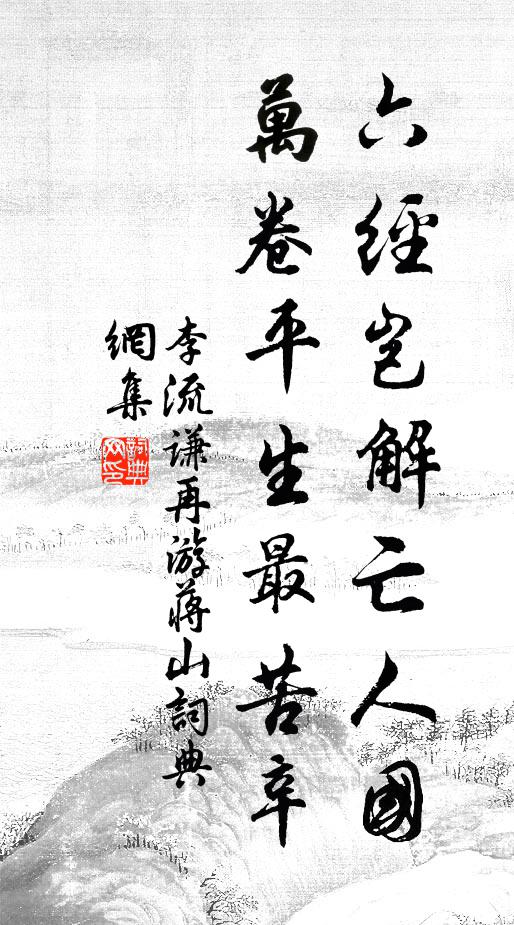 六經豈解亡人國
萬卷平生最苦辛
李流謙再游蔣山詞典
網集